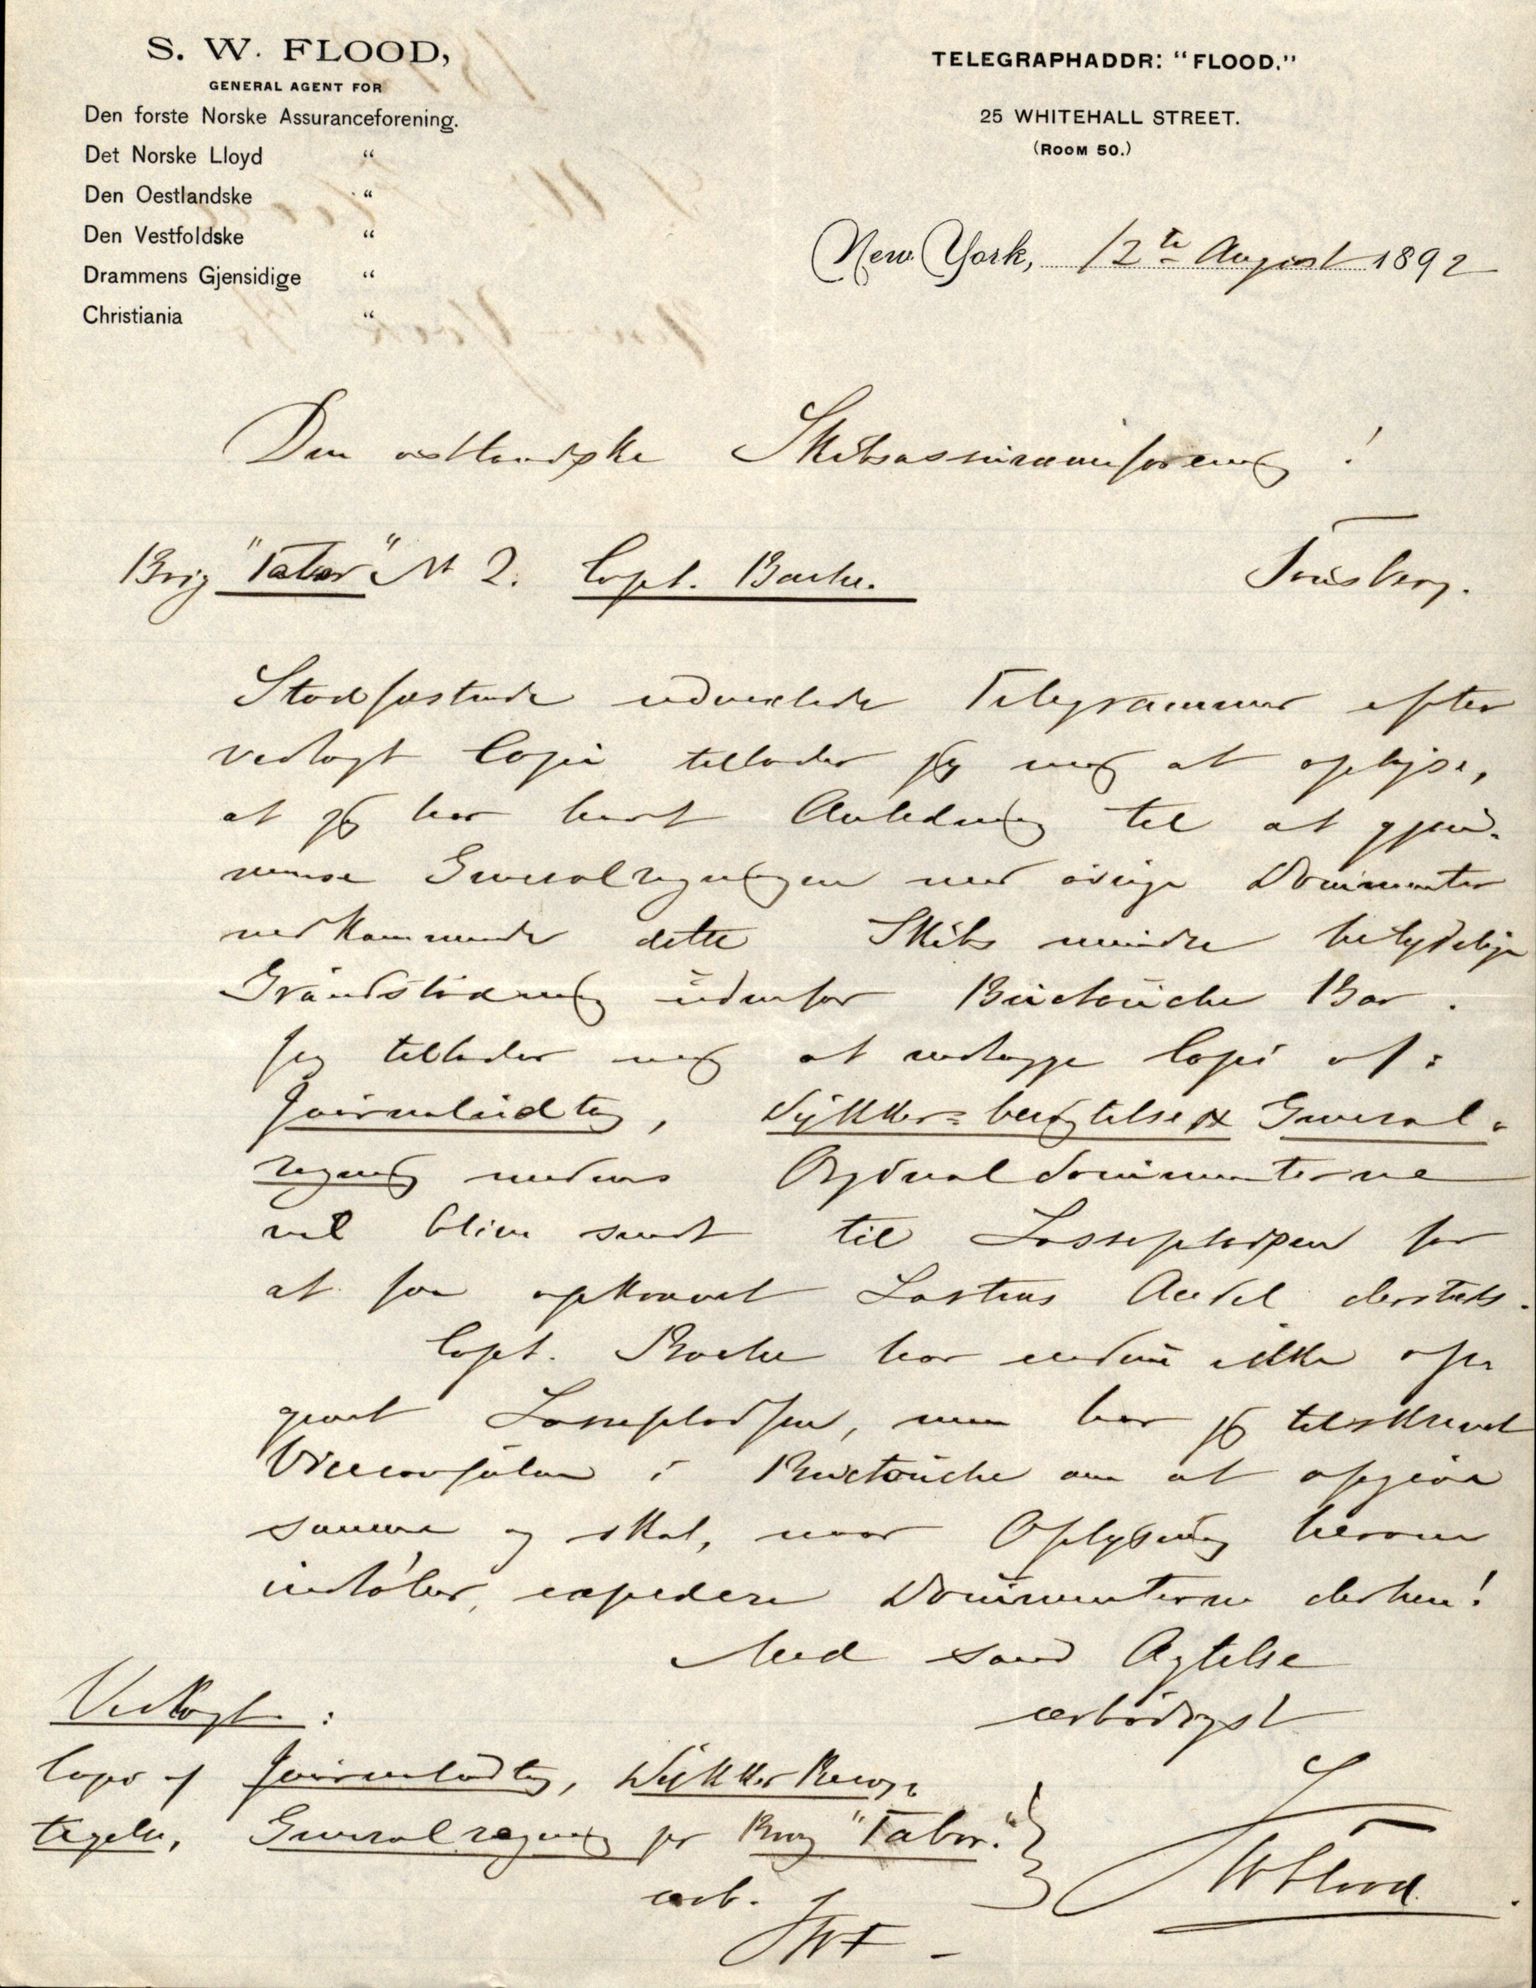 S. W. FLOOD,
GENERAL AGENT FOR
Den forste Norske Assuranceforening.
Det Norske Lloyd "
Den Oestlandske "
Den Vestfoldske "
Drammens Gjensidige "
Christiania "
TELEGRAPHADDR: "FLOOD."
25 WHITEHALL STREET.
(ROOM 50.)
New York, 12te August 1892
Den østlandske Skibsassuranceforening!
Tönsberg.
Brig "Tabor" No 2. Capt. Bache.
Stadfæstende udvexlede Telegrammer efter
vedlagt Copie tillader jeg mig at oplyse,
at jeg har havt Anledning til at gjen-
nemse Generalregningen med øvrige Documenter
vedkommende dette Skibs mindre betydelige
Grundstödning udenfor Buctouche Bar.
Jeg tillader mig at vedlægge Copi af:
Journaludtog, Dykker-besigtelse & General-
regning medens Orginaldocumenterne
vil blive sendt til Lossepladsen for
at faa opkrævet Lastens Andel dersteds.
Capt. Bache har endnu ikke op-
givet Lossepladsen, men har jeg tilskrevet
Viceconsulen i Buctouche om at opgive
samme og skal, naar Oplysning herom
indløber, expedere Documenterne derhen!
Med sand Agtelse
ærbødigst
SWFlood
Vedlagt:
Copi af Journaludtog, Dykker Besig-
tigelse, Generalregning pr Brig "Tabor."
ærb.
SWF